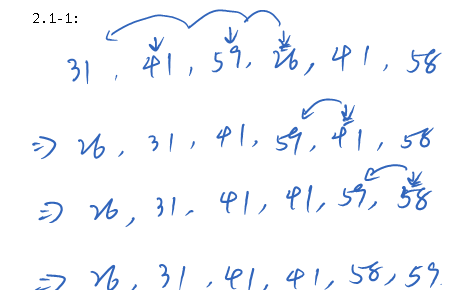 2.1-1:
31, 41, 59, 26, 41, 58
⇒ 26, 31, 41, 59, 41, 58
⇒ 26, 31, 41, 41, 59, 58
⇒ 26, 31, 41, 41, 58, 59